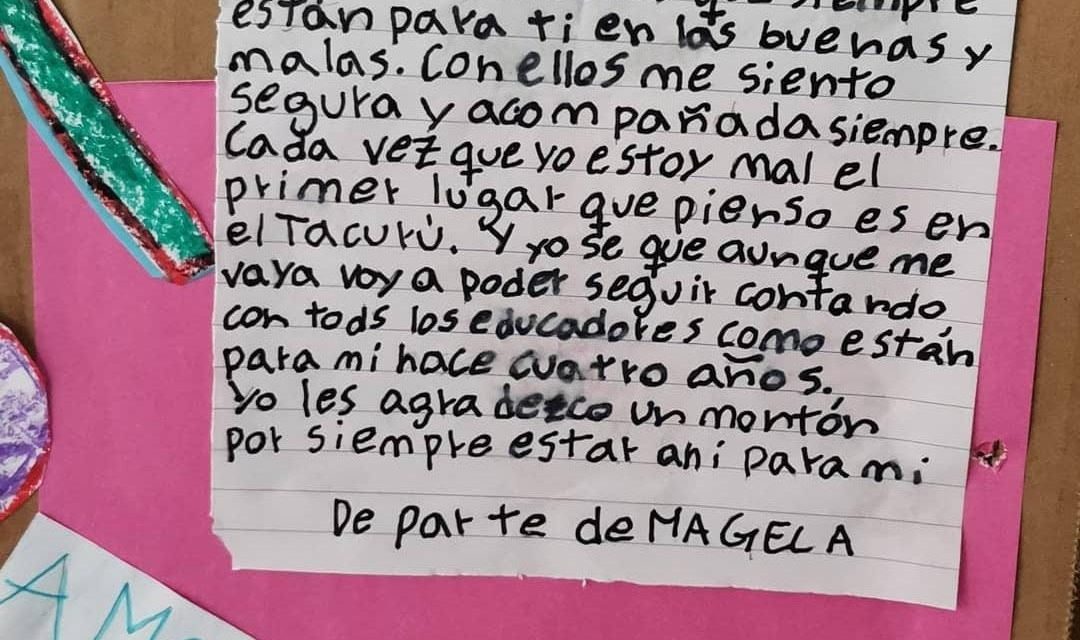 siempre
están para ti en las buenas y
malas. Con ellos me siento
segura y acompañada siempre.
Cada vez que yo estoy mal el
primer lugar que pienso es en
el Tacurú. Y yo se que aunque me
vaya voy a poder seguir contando
con tods los educadores como están
para mi hace cuatro años.
Yo les agradezco un montón
por siempre estar ahí para mi
De parte de MAGELA
AM